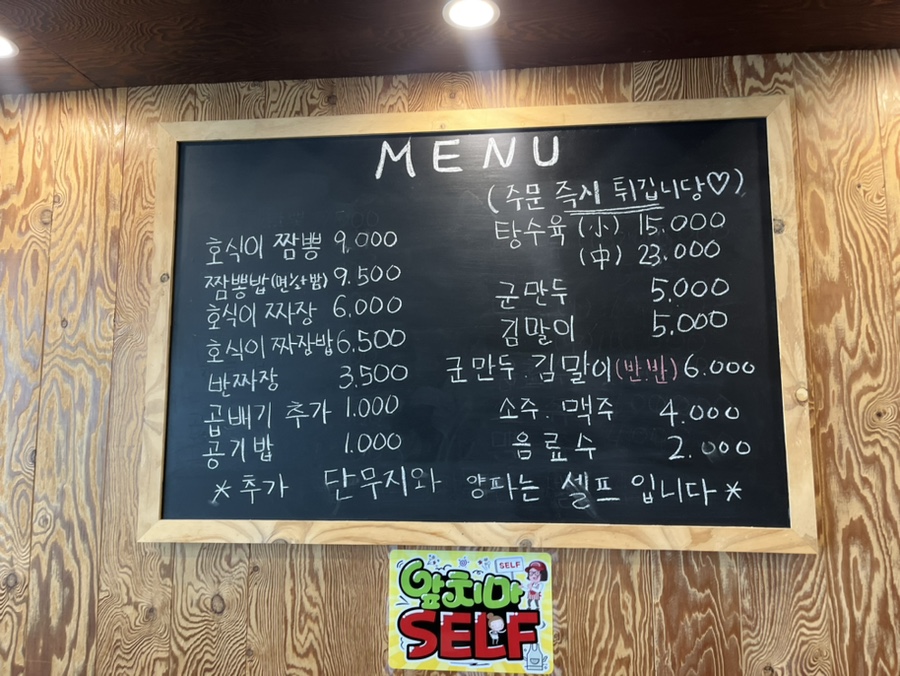 MENU
(주문 즉시 튀깁니당♡)
호식이 짬뽕 9,000
짬뽕밥(면or밥) 9.500
호식이 짜장 6.000
호식이 짜장밥 6,500
반짜장 3.500
곱배기 추가 1.000
공기밥 1.000
탕수육 (小) 15.000
(中) 23.000
군만두 5.000
김말이 5,000
군만두.김말이(반.반) 6.000
소주. 맥주 4.000
음료수 2.000
*추가 단무지와 양파는 셀프 입니다*
SELF
앞치마
SELF